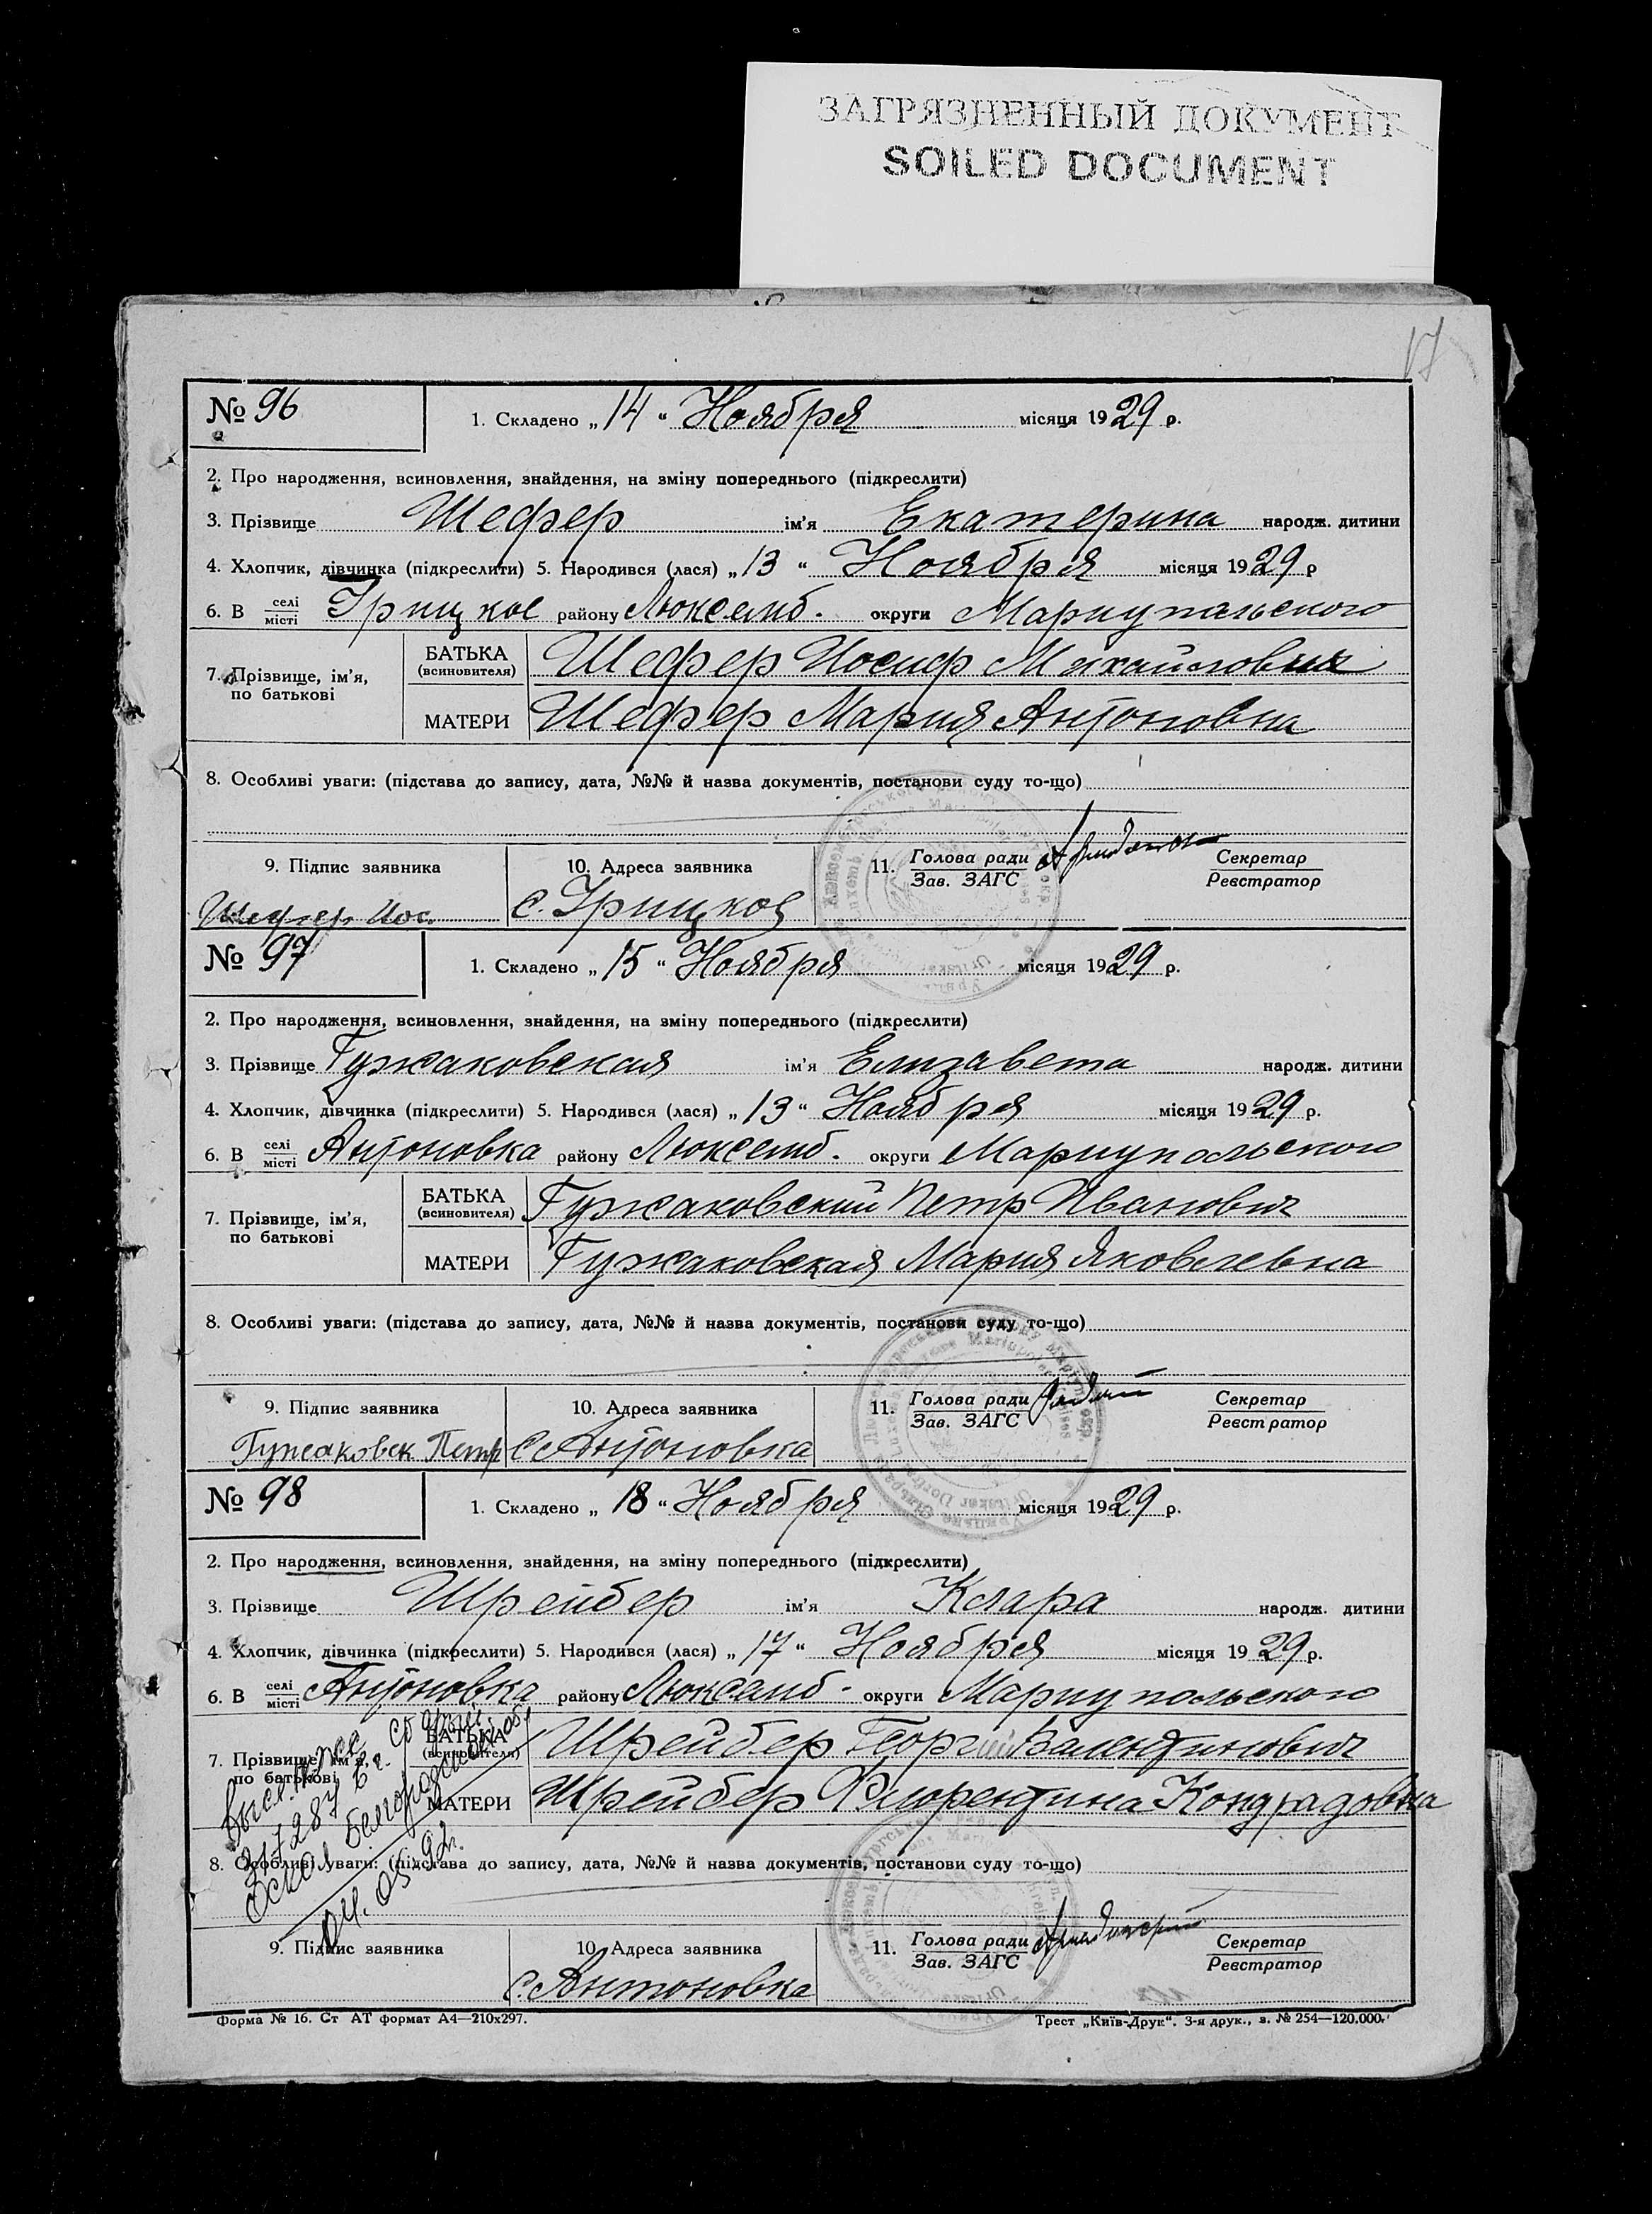 ЗАГРЯЗНЕННЫЙ ДОКУМЕНТ
SOILED DOCUMENT
17
№ 96
1. Складено „14“ Ноября місяця 1929 р.
2. Про народження, всиновлення, знайдення, на зміну попереднього (підкреслити)
3. Прізвище Шефер ім'я Екатерина народж. дитини
4. Хлопчик, дівчинка (підкреслити) 5. Народився (лася) „13“ Ноября місяця 1929 р
6. В селі/місті Урицкое району Люксемб. округи Мариупольского
7. Прізвище, ім'я, по батькові
БАТЬКА (всиновителя) Шефер Иосиф Михайлович
МАТЕРИ Шефер Мария Антоновна
8. Особливі уваги: (підстава до запису, дата, №№ й назва документів, постанови суду то-що)
9. Підпис заявника 10. Адреса заявника 11. Голова ради/Зав. ЗАГС Секретар/Реєстратор
Шефер Иос. с. Урицкое
№ 97
1. Складено „15“ Ноября місяця 1929 р.
2. Про народження, всиновлення, знайдення, на зміну попереднього (підкреслити)
3. Прізвище Гужаковская ім'я Елизавета народж. дитини
4. Хлопчик, дівчинка (підкреслити) 5. Народився (лася) „13“ Ноября місяця 1929 р.
6. В селі/місті Антоновка району Люксемб. округи Мариупольского
7. Прізвище, ім'я, по батькові
БАТЬКА (всиновителя) Гужаковский Петр Иванович
МАТЕРИ Гужаковская Мария Яковлевна
8. Особливі уваги: (підстава до запису, дата, №№ й назва документів, постанови суду то-що)
9. Підпис заявника 10. Адреса заявника 11. Голова ради/Зав. ЗАГС Секретар/Реєстратор
Гужаковск Петр С Антоновка
№ 98
1. Складено „18“ Ноября місяця 1929 р.
2. Про народження, всиновлення, знайдення, на зміну попереднього (підкреслити)
3. Прізвище Шрейбер ім'я Клара народж. дитини
4. Хлопчик, дівчинка (підкреслити) 5. Народився (лася) „17“ Ноября місяця 1929 р.
6. В селі/місті Антоновка району Люксемб. округи Мариупольского
7. Прізвище, ім'я, по батькові
БАТЬКА (всиновителя) Шрейбер Георгий Валентинович
МАТЕРИ Шрейбер Флорентина Кондрадовна
317287 в г.
Оскол Белгородской об.
04.05.92г.
8. Особливі уваги: (підстава до запису, дата, №№ й назва документів, постанови суду то-що)
9. Підпис заявника 10. Адреса заявника 11. Голова ради/Зав. ЗАГС Секретар/Реєстратор
С. Антоновка
Форма № 16. Ст АТ формат А4—210х297.
Трест „Київ-Друк“. 3-я друк., з. № 254—120.000.